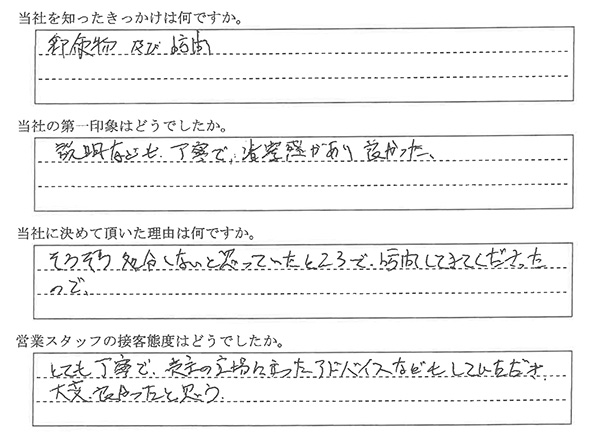 当社を知ったきっかけは何ですか。
郵便物 及び 訪問
当社の第一印象はどうでしたか。
説明なども、丁寧で、清潔感があり 良かった、
当社に決めて頂いた理由は何ですか。
そろそろ 処分しないと思っていたところで、訪問してきてくださった
ので、
営業スタッフの接客態度はどうでしたか。
とても 丁寧で、売主の立場に立ったアドバイスなどもしていただき、
大変 良かったと思う.